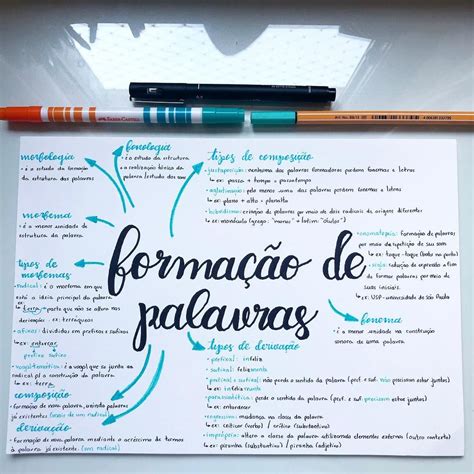 FABER-CASTELL
morfologia
• é o estudo da formação
da estrutura das palavras
fonologia
• é o estudo da estrutura
tipos de composição
• justaposição: nenhuma das palavras formadoras perdem fonemas e letras
↳ ex: passa + tempo = passatempo
• aglutinação: pelo menos uma das palavras perdem fonemas e letras
↳ ex: plano + alto = planalto
• hibridismo: criação de palavras por meio de dois radicais de origens diferentes
morfema
• é a menor unidade de
estrutura da palavra
formação de
palavras
tipos de
morfemas
• radical: é o morfema em que
está a ideia principal da palavra
ex: terra
ex: terráqueos
• afixos: divididos em prefixos e sufixos
↳ ex: enturvar
prefixo sufixo
• vogal temática: é a vogal que se junta ao
radical p/ a construção da palavra
↳ ex: terra
composição
• formação de nova palavra, unindo palavras
já existentes (mais de um radical)
derivação
• formação de nova palavra mediante o acréscimo de termos
à palavra já existente (um radical)
• onomatopeia: formação de palavras
por meio da repetição de seu som
↳ ex: toque-toque (bater na porta)
• sigla: redução da expressão e
formar palavras por meio de
suas iniciais.
↳ ex: USP - universidade de São Paulo
fonema
• é a menor unidade na construção
sonora de uma palavra
tipos de derivação
• prefixal: infeliz
• sufixal: felizmente
• prefixal e sufixal: não perde o sentido da palavra (pref. e suf. não precisam estar juntos)
↳ ex: infelizmente
• parassintética: não perde o sentido da palavra (pref. e suf. precisam estar juntos)
↳ ex: entardecer
• regressiva: mudança na classe da palavra
↳ ex: criticar (verbo) / crítica (substantivo)
• imprópria: altera a classe da palavra utilizando elementos externos (outro contexto)
↳ ex: piranha (substantivo) / piranha (adjetivo)